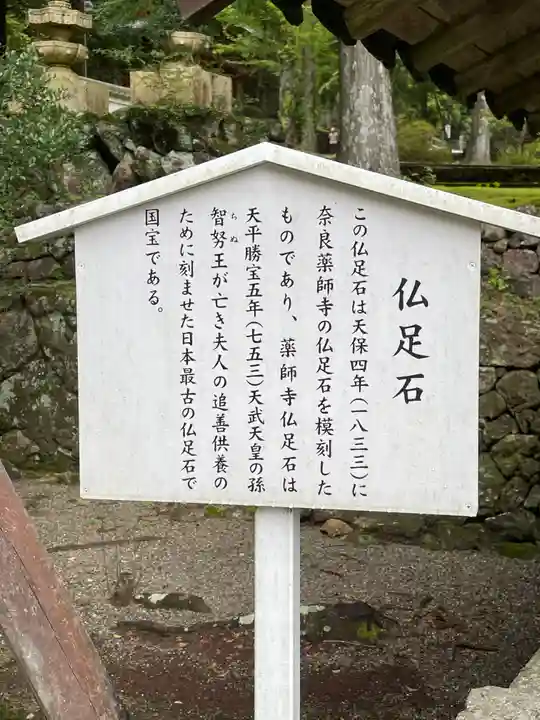 仏足石
この仏足石は天保四年(一八三三)に
奈良薬師寺の仏足石を模刻した
ものであり、薬師寺仏足石は
天平勝宝五年(七五三)天武天皇の孫
智努王が亡き夫人の追善供養の
ちぬ
ために刻ませた日本最古の仏足石で
国宝である。